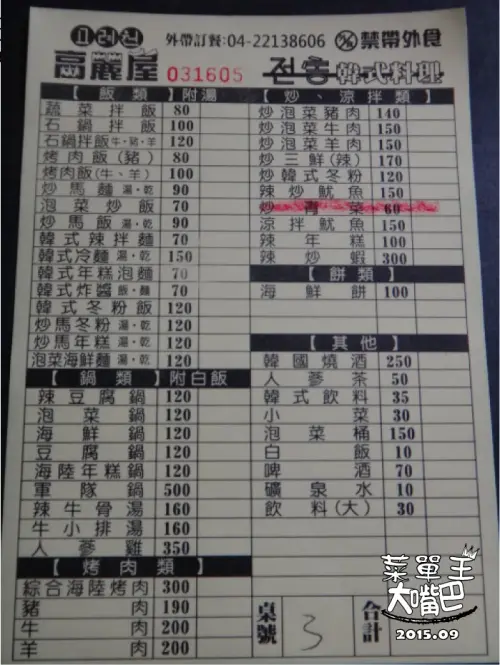 고려원 外帶訂餐:04-22138606 禁帶外食
高麗屋 031605 전통 韓式料理
【 飯類 】附湯
蔬菜拌飯 80
石鍋拌飯 100
石鍋拌飯牛・豬・羊 120
烤肉飯(豬) 80
烤肉飯(牛、羊) 100
炒馬麵 湯・乾 90
泡菜炒飯 70
炒馬飯 湯・乾 90
韓式辣拌麵 70
韓式冷麵 湯・乾 150
韓式年糕泡麵 70
韓式炸醬 飯・麵 70
韓式冬粉飯 120
炒馬冬粉 湯・乾 120
炒馬年糕 湯・乾 120
泡菜海鮮麵 湯・乾 120
【 鍋類 】附白飯
辣豆腐鍋 120
泡菜鍋 120
海鮮鍋 120
豆腐鍋 120
海陸年糕鍋 120
軍隊鍋 500
辣牛骨湯 160
牛小排湯 160
人蔘雞 350
【 烤肉類 】
綜合海陸烤肉 300
豬肉 190
牛肉 200
羊肉 200
【 炒、涼拌類 】
炒泡菜豬肉 140
炒泡菜牛肉 150
炒泡菜羊肉 150
炒三鮮(辣) 170
炒韓式冬粉 120
辣炒魷魚 150
炒青菜 60
涼拌魷魚 150
辣年糕 100
辣炒蝦 300
【 餅類 】
海鮮餅 100
【 其他 】
韓國燒酒 250
人蔘茶 50
韓式飲料 35
小菜 30
泡菜桶 150
白飯 10
啤酒 70
礦泉水 10
飲料(大) 30
桌號 3 合計
菜單王
大嘴巴
2015.09